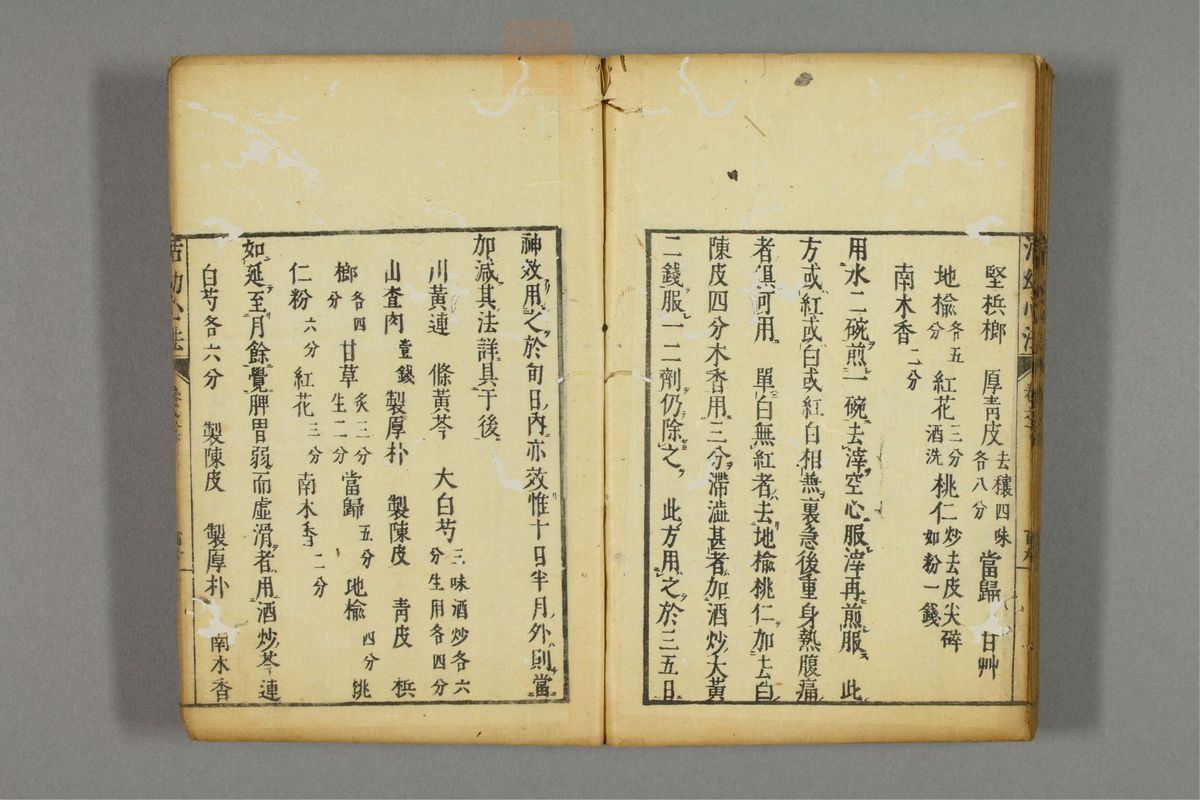 堅梹榔　厚青皮去穰四味各八分　當歸　甘艸
地楡各五分　紅花三分酒洗　桃仁炒去皮尖硏如粉一錢
南木香二分
用水二碗煎一碗去滓空心服滓再煎服　此
方或紅或白或紅白相兼裏急後重身熱腹痛
者俱可用　單白無紅者去地楡桃仁加去白
陳皮四分木香用三分滯澁甚者加酒炒大黃
二錢服一二劑仍除之　此方用之於三五日
神效用之於旬日內亦效惟十日半月外則當
加減其法詳具于後
川黃連　條黃芩　大白芍三味酒炒各六分生用各四分
山査肉壹錢　製厚朴　製陳皮　青皮　梹
榔各四分　甘草炙三分生二分　當歸五分　地楡四分　桃
仁粉六分　紅花三分　南木香二分
如延至月餘覺脾胃弱而虛滑者用酒炒芩連
白芍各六分　製陳皮　製厚朴　南木香
活幼心法